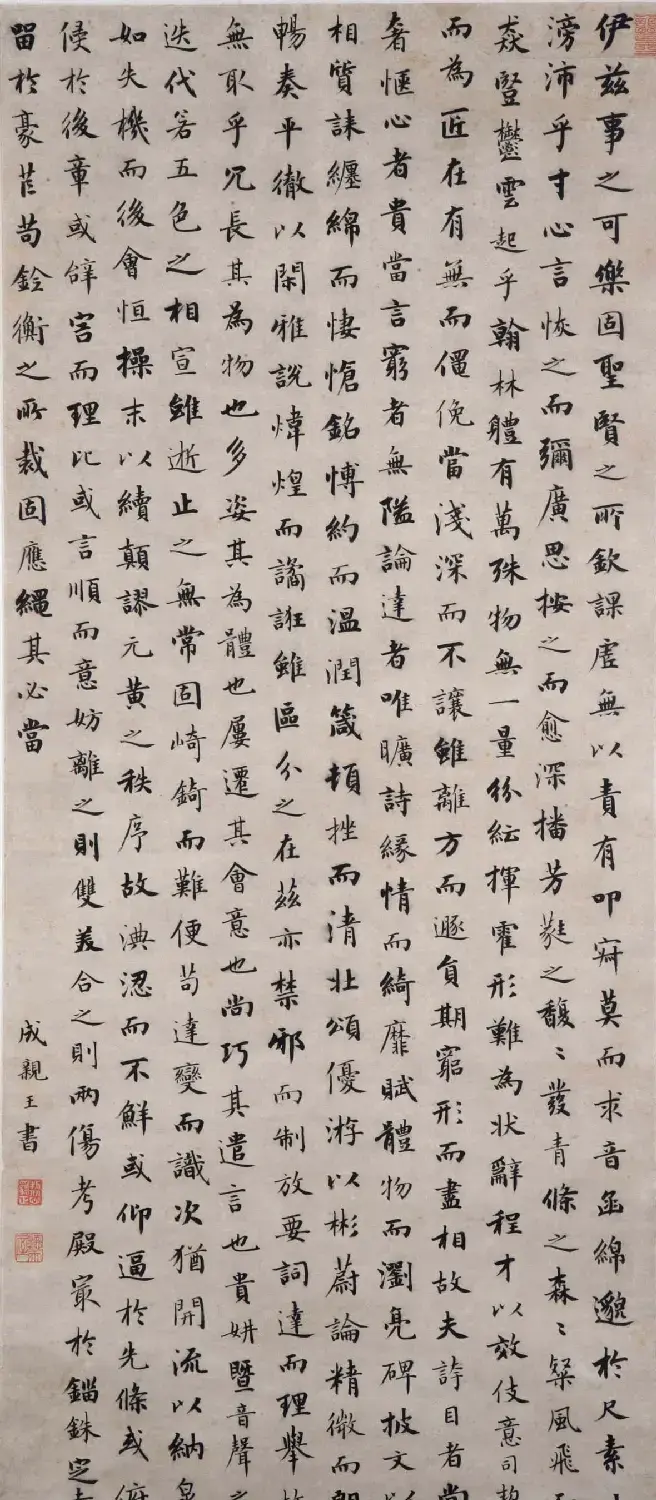 伊茲事之可樂固聖賢之所欽課虛無以責有叩寂莫而求音函綿邈於尺素
滂沛乎寸心言恢之而彌廣思按之而愈深播芳蕤之馥〻發青條之森〻粲風飛
猋豎鬱雲起乎翰林體有萬殊物無一量紛紜揮霍形難為狀辭程才以效伎意司
而為匠在有無而僶俛當淺深而不讓雖離方而遯員期窮形而盡相故夫誇目者尚
奢愜心者貴當言窮者無隘論達者唯曠詩緣情而綺靡賦體物而瀏亮碑披文以
相質誄纏綿而悽愴銘博約而溫潤箴頓挫而清壯頌優游以彬蔚論精微而朗
暢奏平徹以閑雅說煒煌而譎誑雖區分之在茲亦禁邪而制放要詞達而理舉故
無取乎冗長其為物也多姿其為體也屢遷其會意也尚巧其遣言也貴妍暨音聲之
迭代若五色之相宣雖逝止之無常固崎錡而難便苟達變而識次猶開流以納泉
如失機而後會恒操末以續顛謬元黃之秩序故淟涊而不鮮或仰逼於先條或俯
侵於後章或辭害而理比或言順而意妨離之則雙美合之則兩傷考殿最於錙銖定去
留於豪芒苟銓衡之所裁固應繩其必當
成親王書